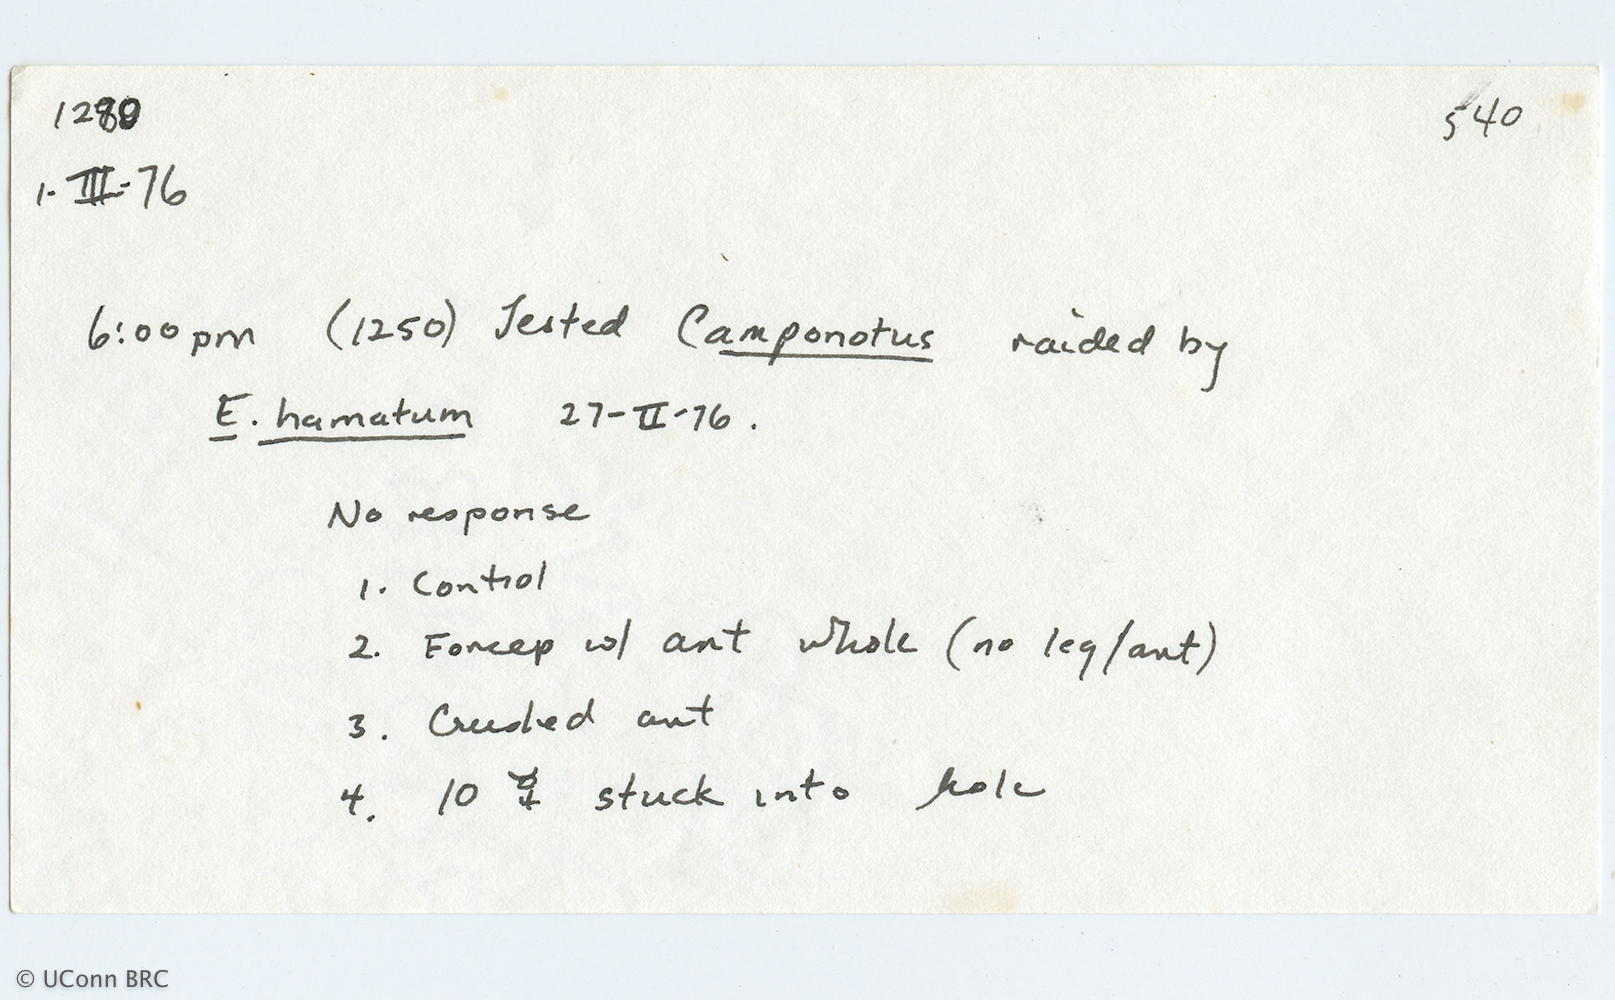 540
1-III-76
6:00 pm (1250) Tested Camponotus raided by
E. hamatum 27-II-76.
No response
1. Control
2. Forcep w/ ant whole (no leg/ant)
3. Crushed ant
4. 10 stuck into hole
© UConn BRC